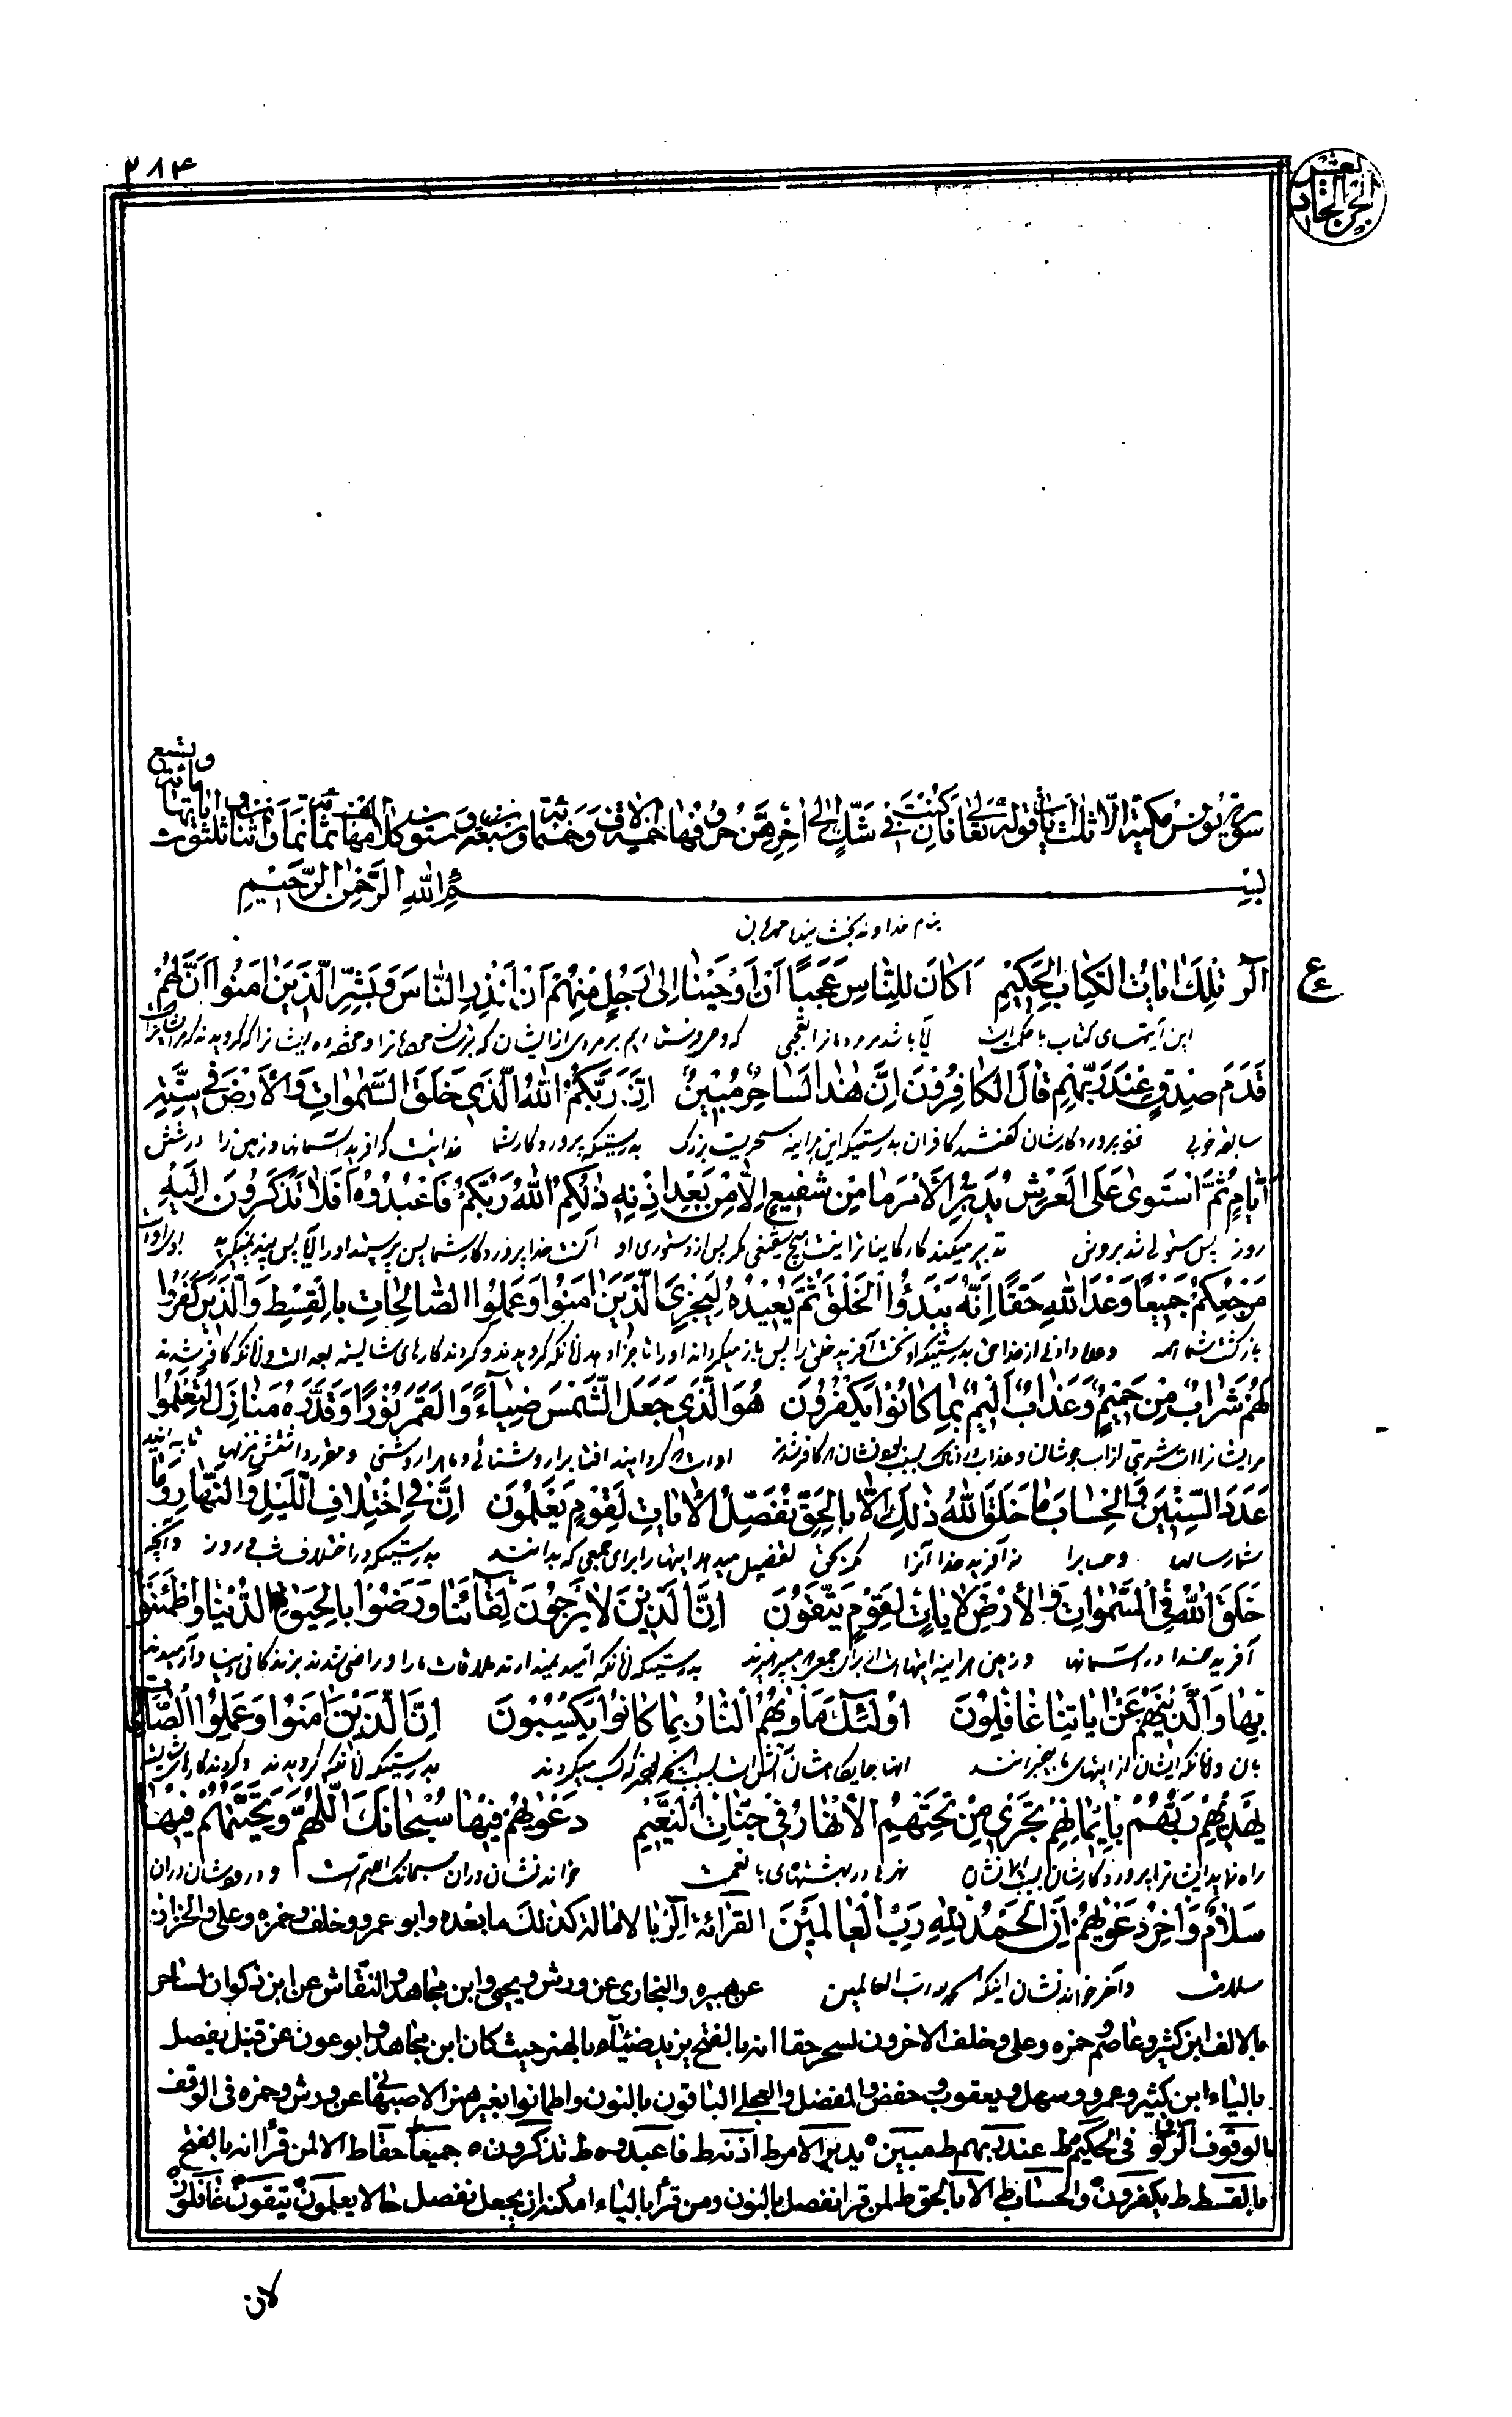 ٢٨٤
الجزء الحادي عشر
سورة يونس مكية الا ثلث ايات قوله تعالى فان كنت في شك الى اخرهن حروفها خمسة الاف وخمسمائة وسبعة وستون كلمها الف وثمانمائة واثنتان وثلثون اياتها مائة وتسع
بسم الله الرحمن الرحيم
بنام خداوند بخشاینده مهربان
الر تِلْكَ اٰيَاتُ الْكِتَابِ الْحَكِيْمِ اَكَانَ لِلنَّاسِ عَجَبًا اَنْ اَوْحَيْنَا اِلٰى رَجُلٍ مِنْهُمْ اَنْ اَنْذِرِ النَّاسَ وَبَشِّرِ الَّذِيْنَ اٰمَنُوا اَنَّ لَهُمْ
این آیتهای کتاب با حکمت است آیا باشد مردمانرا تعجبی که وحی فرستادیم بر مردی از ایشان که
قَدَمَ صِدْقٍ عِنْدَ رَبِّهِمْ قَالَ الْكَافِرُوْنَ اِنَّ هٰذَا لَسَاحِرٌ مُبِيْنٌ اِنَّ رَبَّكُمُ اللهُ الَّذِيْ خَلَقَ السَّمٰوَاتِ وَالْاَرْضَ فِيْ سِتَّةِ
سابقه خوبی نزد پروردکارشان کفتند کافران بدرستیکه این هراینه سحریست بزرک بدرستیکه پروردکار شما خدائیست که افرید آسمانها و زمین را در شش
اَيَّامٍ ثُمَّ اسْتَوٰى عَلَى الْعَرْشِ يُدَبِّرُ الْاَمْرَ مَا مِنْ شَفِيْعٍ اِلَّا مِنْ بَعْدِ اِذْنِهِ ذٰلِكُمُ اللهُ رَبُّكُمْ فَاعْبُدُوْهُ اَفَلَا تَذَكَّرُوْنَ اِلَيْهِ
روز پس مستولی شد بر عرش تدبیر میکند کار کاینات را نیست هیچ شفیعی مکر پس از دستوری او آنست خدا پروردکار شما پس بپرستید او را آیا پس پند نمیکیرید
مَرْجِعُكُمْ جَمِيْعًا وَعْدَ اللهِ حَقًّا اِنَّهُ يَبْدَؤُا الْخَلْقَ ثُمَّ يُعِيْدُهُ لِيَجْزِيَ الَّذِيْنَ اٰمَنُوا وَعَمِلُوا الصَّالِحَاتِ بِالْقِسْطِ وَالَّذِيْنَ كَفَرُوا
بازکشت شما همه وعده دادنی از خدا حق بدرستیکه او نخست آفرید خلق را پس باز میکرداند او را تا جزا دهد آنانکه کرویدند و کردند کارهای شایسته بعدالت و آنانکه کافر شدند
لَهُمْ شَرَابٌ مِنْ حَمِيْمٍ وَعَذَابٌ اَلِيْمٌ بِمَا كَانُوْا يَكْفُرُوْنَ هُوَ الَّذِيْ جَعَلَ الشَّمْسَ ضِيَآءً وَالْقَمَرَ نُوْرًا وَقَدَّرَهُ مَنَازِلَ لِتَعْلَمُوا
مر ایشانراست شربتی از آب جوشان و عذاب دردناک بسبب بودنشان که کافر شدند اوست که کردانید افتاب را روشنائی و ماه را روشنی و مقرر داشتش منزلها تا بدانید
عَدَدَ السِّنِيْنَ وَالْحِسَابَ مَا خَلَقَ اللهُ ذٰلِكَ اِلَّا بِالْحَقِّ نُفَصِّلُ الْاٰيَاتِ لِقَوْمٍ يَعْلَمُوْنَ اِنَّ فِي اخْتِلَافِ اللَّيْلِ وَالنَّهَارِ وَمَا
شمار سالها و حساب را نه آفرید خدا آنرا مکر بحق تفضیل میدهد ایتها را برای جمعی که بدانند بدرستیکه در اختلاف شب و روز و آنچه
خَلَقَ اللهُ فِي السَّمٰوَاتِ وَالْاَرْضِ لَاٰيَاتٍ لِقَوْمٍ يَتَّقُوْنَ اِنَّ الَّذِيْنَ لَا يَرْجُوْنَ لِقَآئَنَا وَرَضُوْا بِالْحَيٰوةِ الدُّنْيَا وَاطْمَئَنُّوا
آفرید خدا در آسمانها و زمین هراینه ایتهاست از برای جمعی که میپرهیزند بدرستیکه آنانکه امید نمیدارند ملاقات ما را و راضی شدند بزندکانی دنیا و آرمیدند
بِهَا وَالَّذِيْنَ هُمْ عَنْ اٰيَاتِنَا غَافِلُوْنَ اُولٰئِكَ مَاْوٰيهُمُ النَّارُ بِمَا كَانُوْا يَكْسِبُوْنَ اِنَّ الَّذِيْنَ اٰمَنُوا وَعَمِلُوا الصَّالِحَاتِ
بان و آنانکه ایشان از ایتهای ما بیخبرانند انها جایکاهشان آتش است بسبب آنچه کسب میکردند بدرستیکه آنانکه کرویدند و کردند کارهای شایسته
يَهْدِيْهِمْ رَبُّهُمْ بِاِيْمَانِهِمْ تَجْرِيْ مِنْ تَحْتِهِمُ الْاَنْهَارُ فِيْ جَنَّاتِ النَّعِيْمِ دَعْوٰيهُمْ فِيْهَا سُبْحَانَكَ اللّٰهُمَّ وَتَحِيَّتُهُمْ فِيْهَا
راه نماید ایشانرا پروردکارشان بسبب ایمانشان نهرها در بهشتهای با نعمت خواندنشان در آن سبحانک اللهم است و درودشان در آن
سَلَامٌ وَاٰخِرُ دَعْوٰيهُمْ اَنِ الْحَمْدُ لِلّٰهِ رَبِّ الْعَالَمِيْنَ القرائة الر بالامالة كذلك ما بعده وابو عمرو وخلف وحمزه وعلي والخزاز
سلامست و آخر خواندنشان اینکه الحمد لله رب العالمین عن هبيره والنجاري عن ورش ويحيى وابن مجاهد والنقاش عن ابن ذكوان لساحر
بالالف ابن كثير وعاصم حمزه وعلي وخلف الاخرون لسحر حقا انه بالفتح يزيد ضئاء بالهمز حيث كان ابن مجاهد وابو عون عن قنبل يفصل
بالياء ابن كثير وعمرو وسهل ويعقوب وحفص والمفضل والعجلي الباقون بالنون واطمانوا بغير همز الاصبهاني عن ورش وحمزه في الوقف
الوقوف الر كوفي الحكيم ط عند ربهم ط مبين ه يدبر الامر ط اذنه ط فاعبدوه ط تذكرون ه جميعا ط حقا ط الا لمن قرأ انه بالفتح
بالقسط ط يكفرون ه والحساب ط الا بالحق ط لمن قرا نفصل بالنون ومن قرأ بالياء امكنه ان يجعل يفصل حالا يعلمون ه يتقون ه غافلون ه
لان